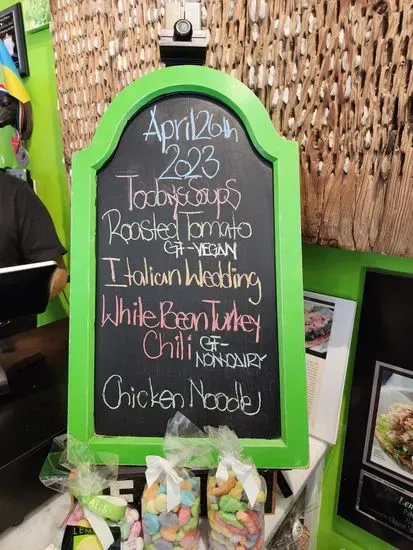 April 26th
2023
Today's Soups
Roasted Tomato
GF-VEGAN
Italian Wedding
White Bean Turkey
Chili GF-
NON-DAIRY
Chicken Noodle